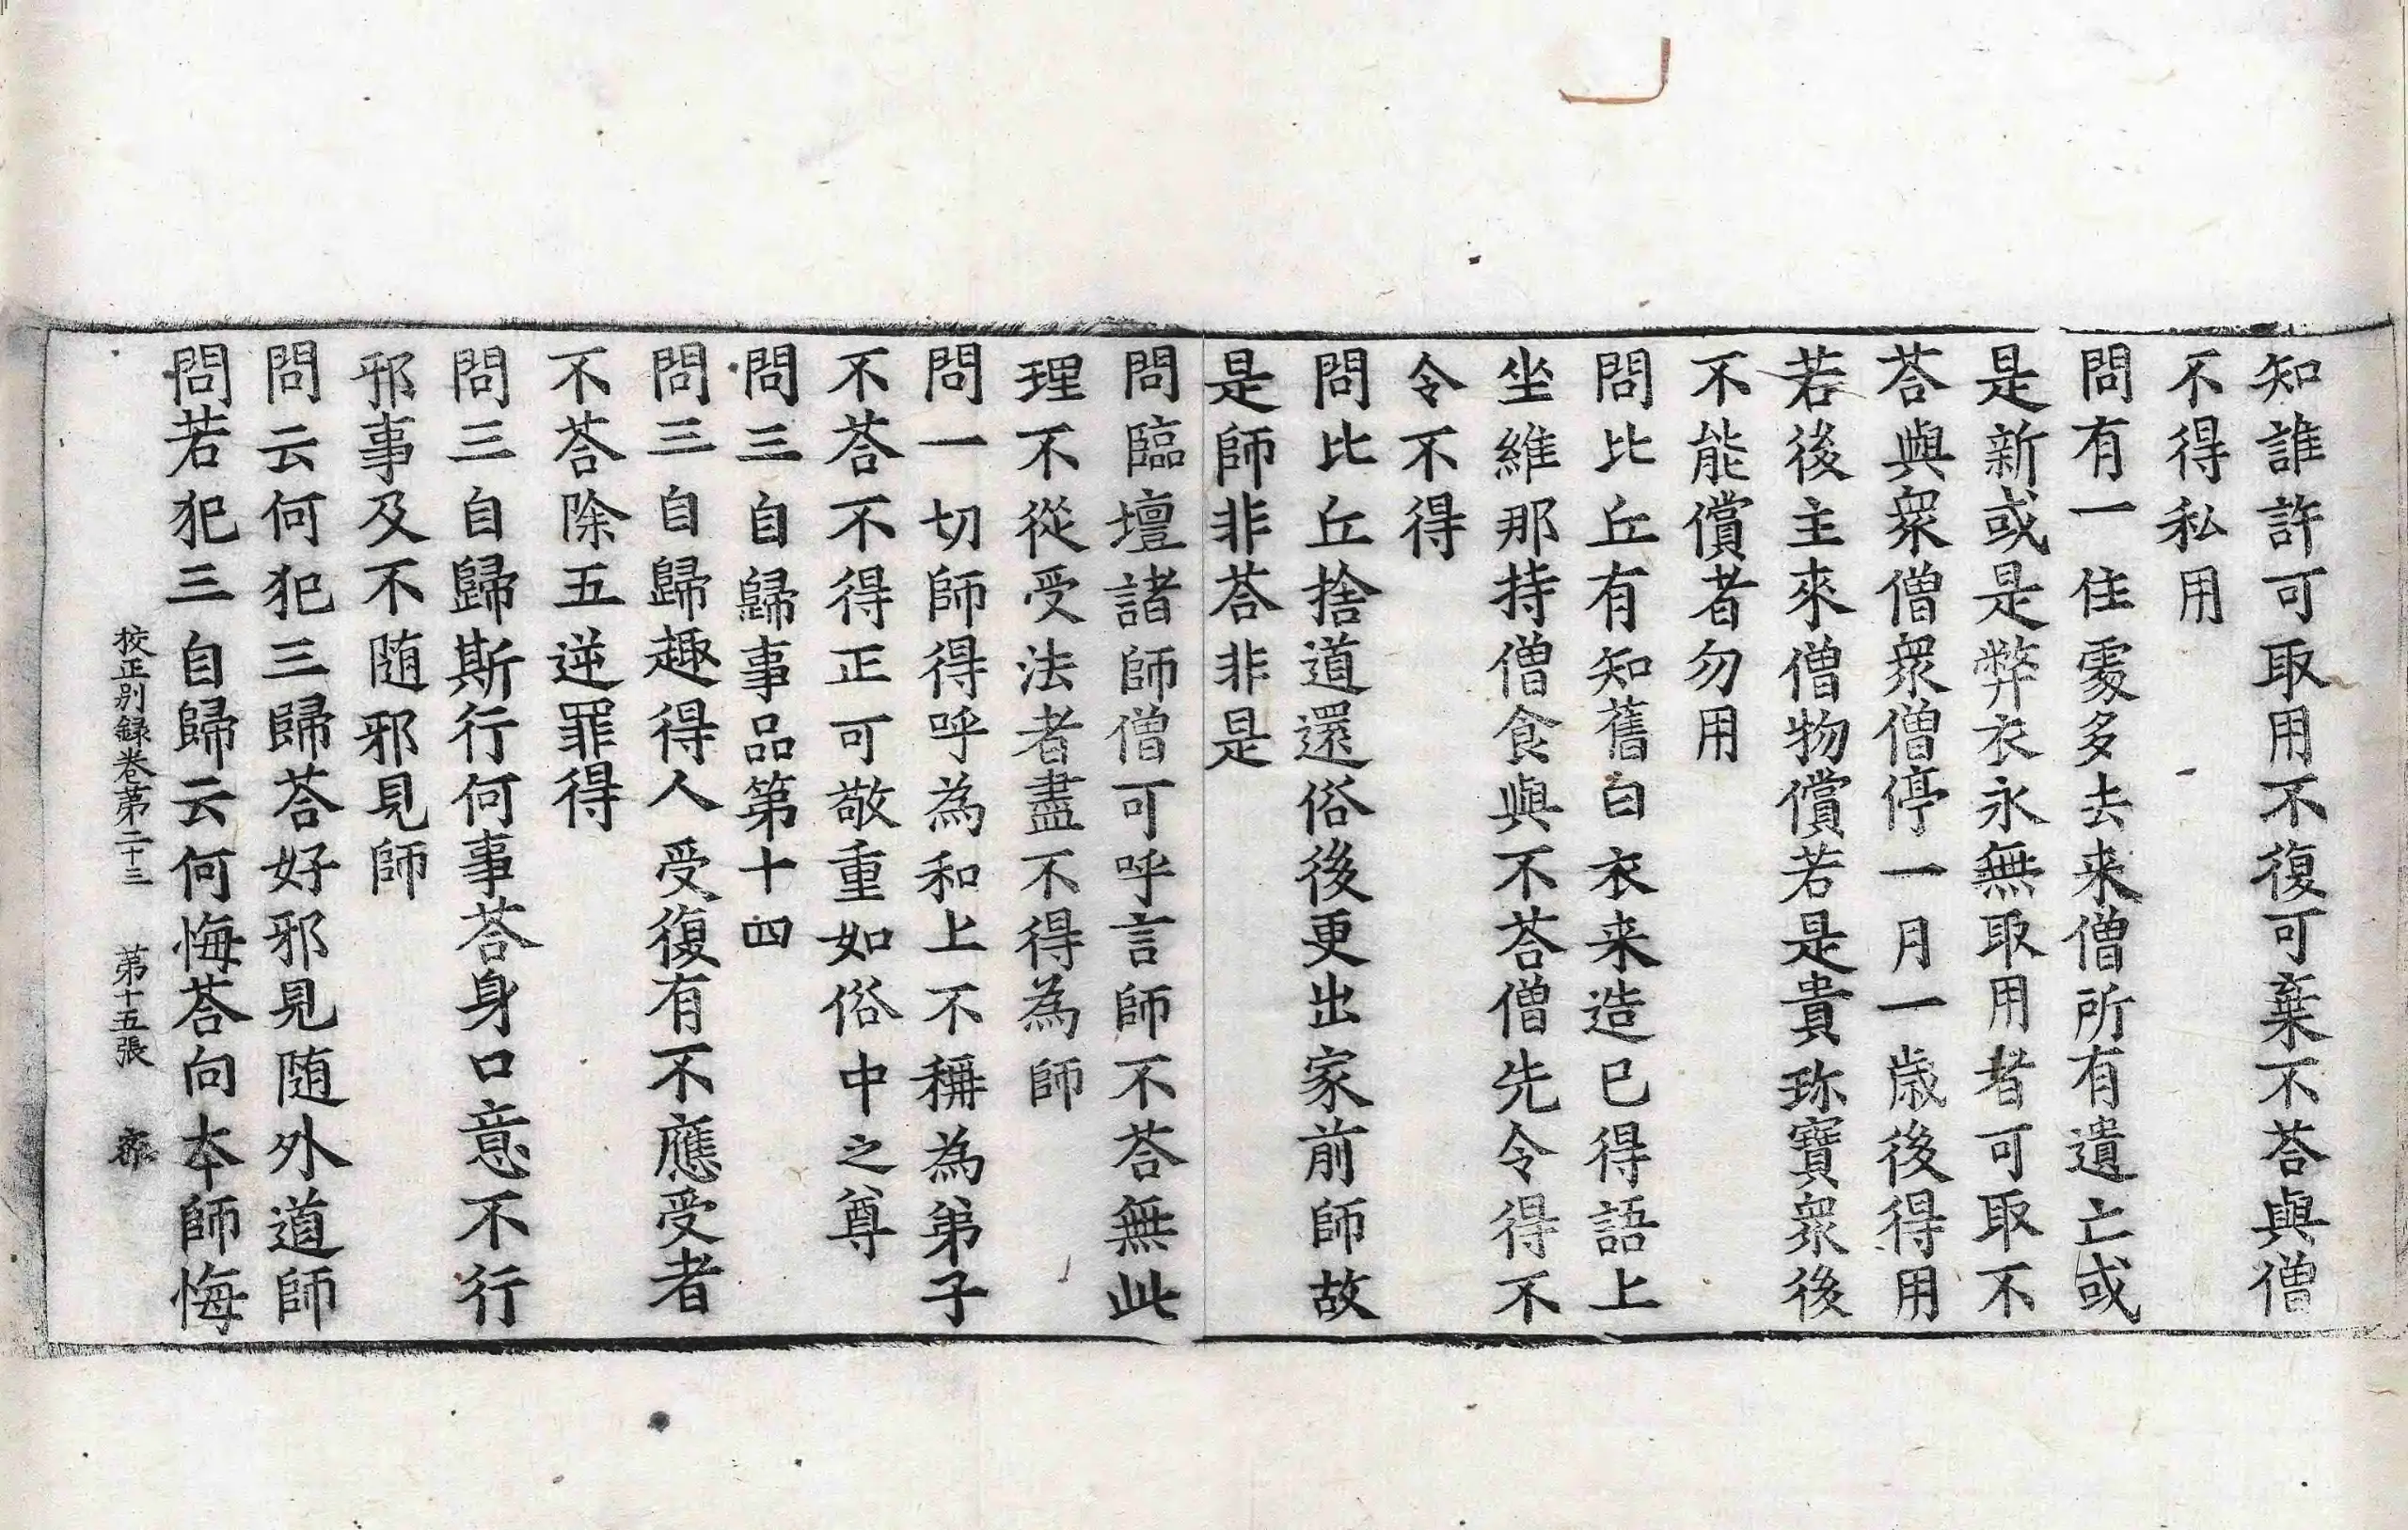 知誰許可取用不復可棄不荅與僧
不得私用
問有一住處多去来僧所有遺亡或
是新或是弊衣永無取用者可取不
荅與衆僧衆僧停一月一歳後得用
若後主來僧物償若是貴珎寶衆後
不能償者勿用
問比丘有知舊白衣来造已得語上
坐維那持僧食與不荅僧先令得不
令不得
問比丘捨道還俗後更出家前師故
是師非荅非是
問臨壇諸師僧可呼言師不荅無此
理不從受法者盡不得為師
問一切師得呼為和上不稱為弟子
不荅不得正可敬重如俗中之尊
問三自歸事品第十四
問三自歸趣得人受復有不應受者
不荅除五逆罪得
問三自歸斯行何事荅身口意不行
邪事及不随邪見師
問云何犯三歸荅好邪見随外道師
問若犯三自歸云何悔荅向本師悔
挍正别録卷苐二十三 苐十五張